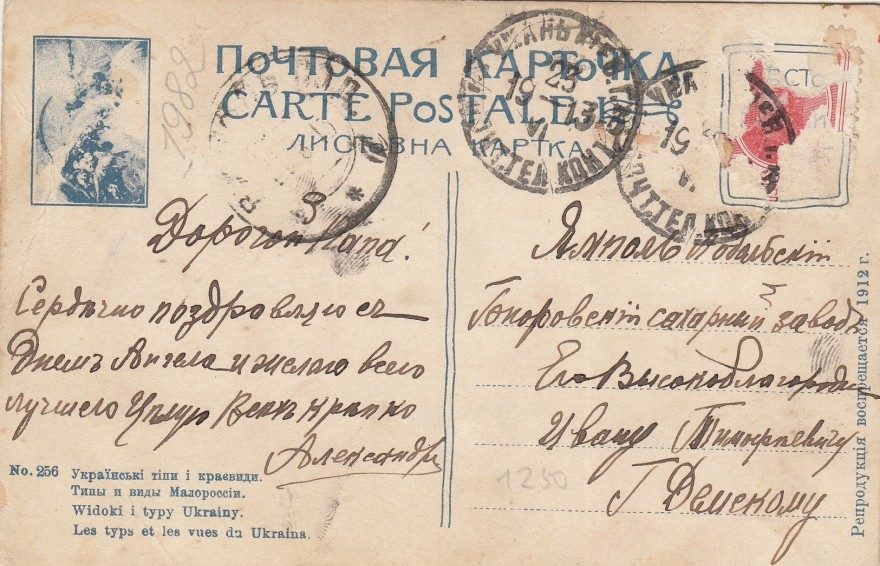 ПОЧТОВАЯ КАРТОЧКА
CARTE POSTALE
ЛИСТОВНА КАРТКА
1982
УМАНЬ
23
19 13
VI
19
8
Дорогой Папа!
Сердѣчно поздровляю съ
Днемъ Ангела и желаю всего
лучшего Цѣлую Всѣхъ крѣпко
Александръ
No. 256 Українські тіпи і краєвиди.
Типы и виды Малороссіи.
Widoki i typy Ukrainy.
Les typs et les vues du Ukraina.
Ямполь Подольскій
сахарній заводъ
Его Высокоблагородію
Ивану Тимофѣевичу
Г Демскому
1250
Репродукція воспрещается 1912 г.